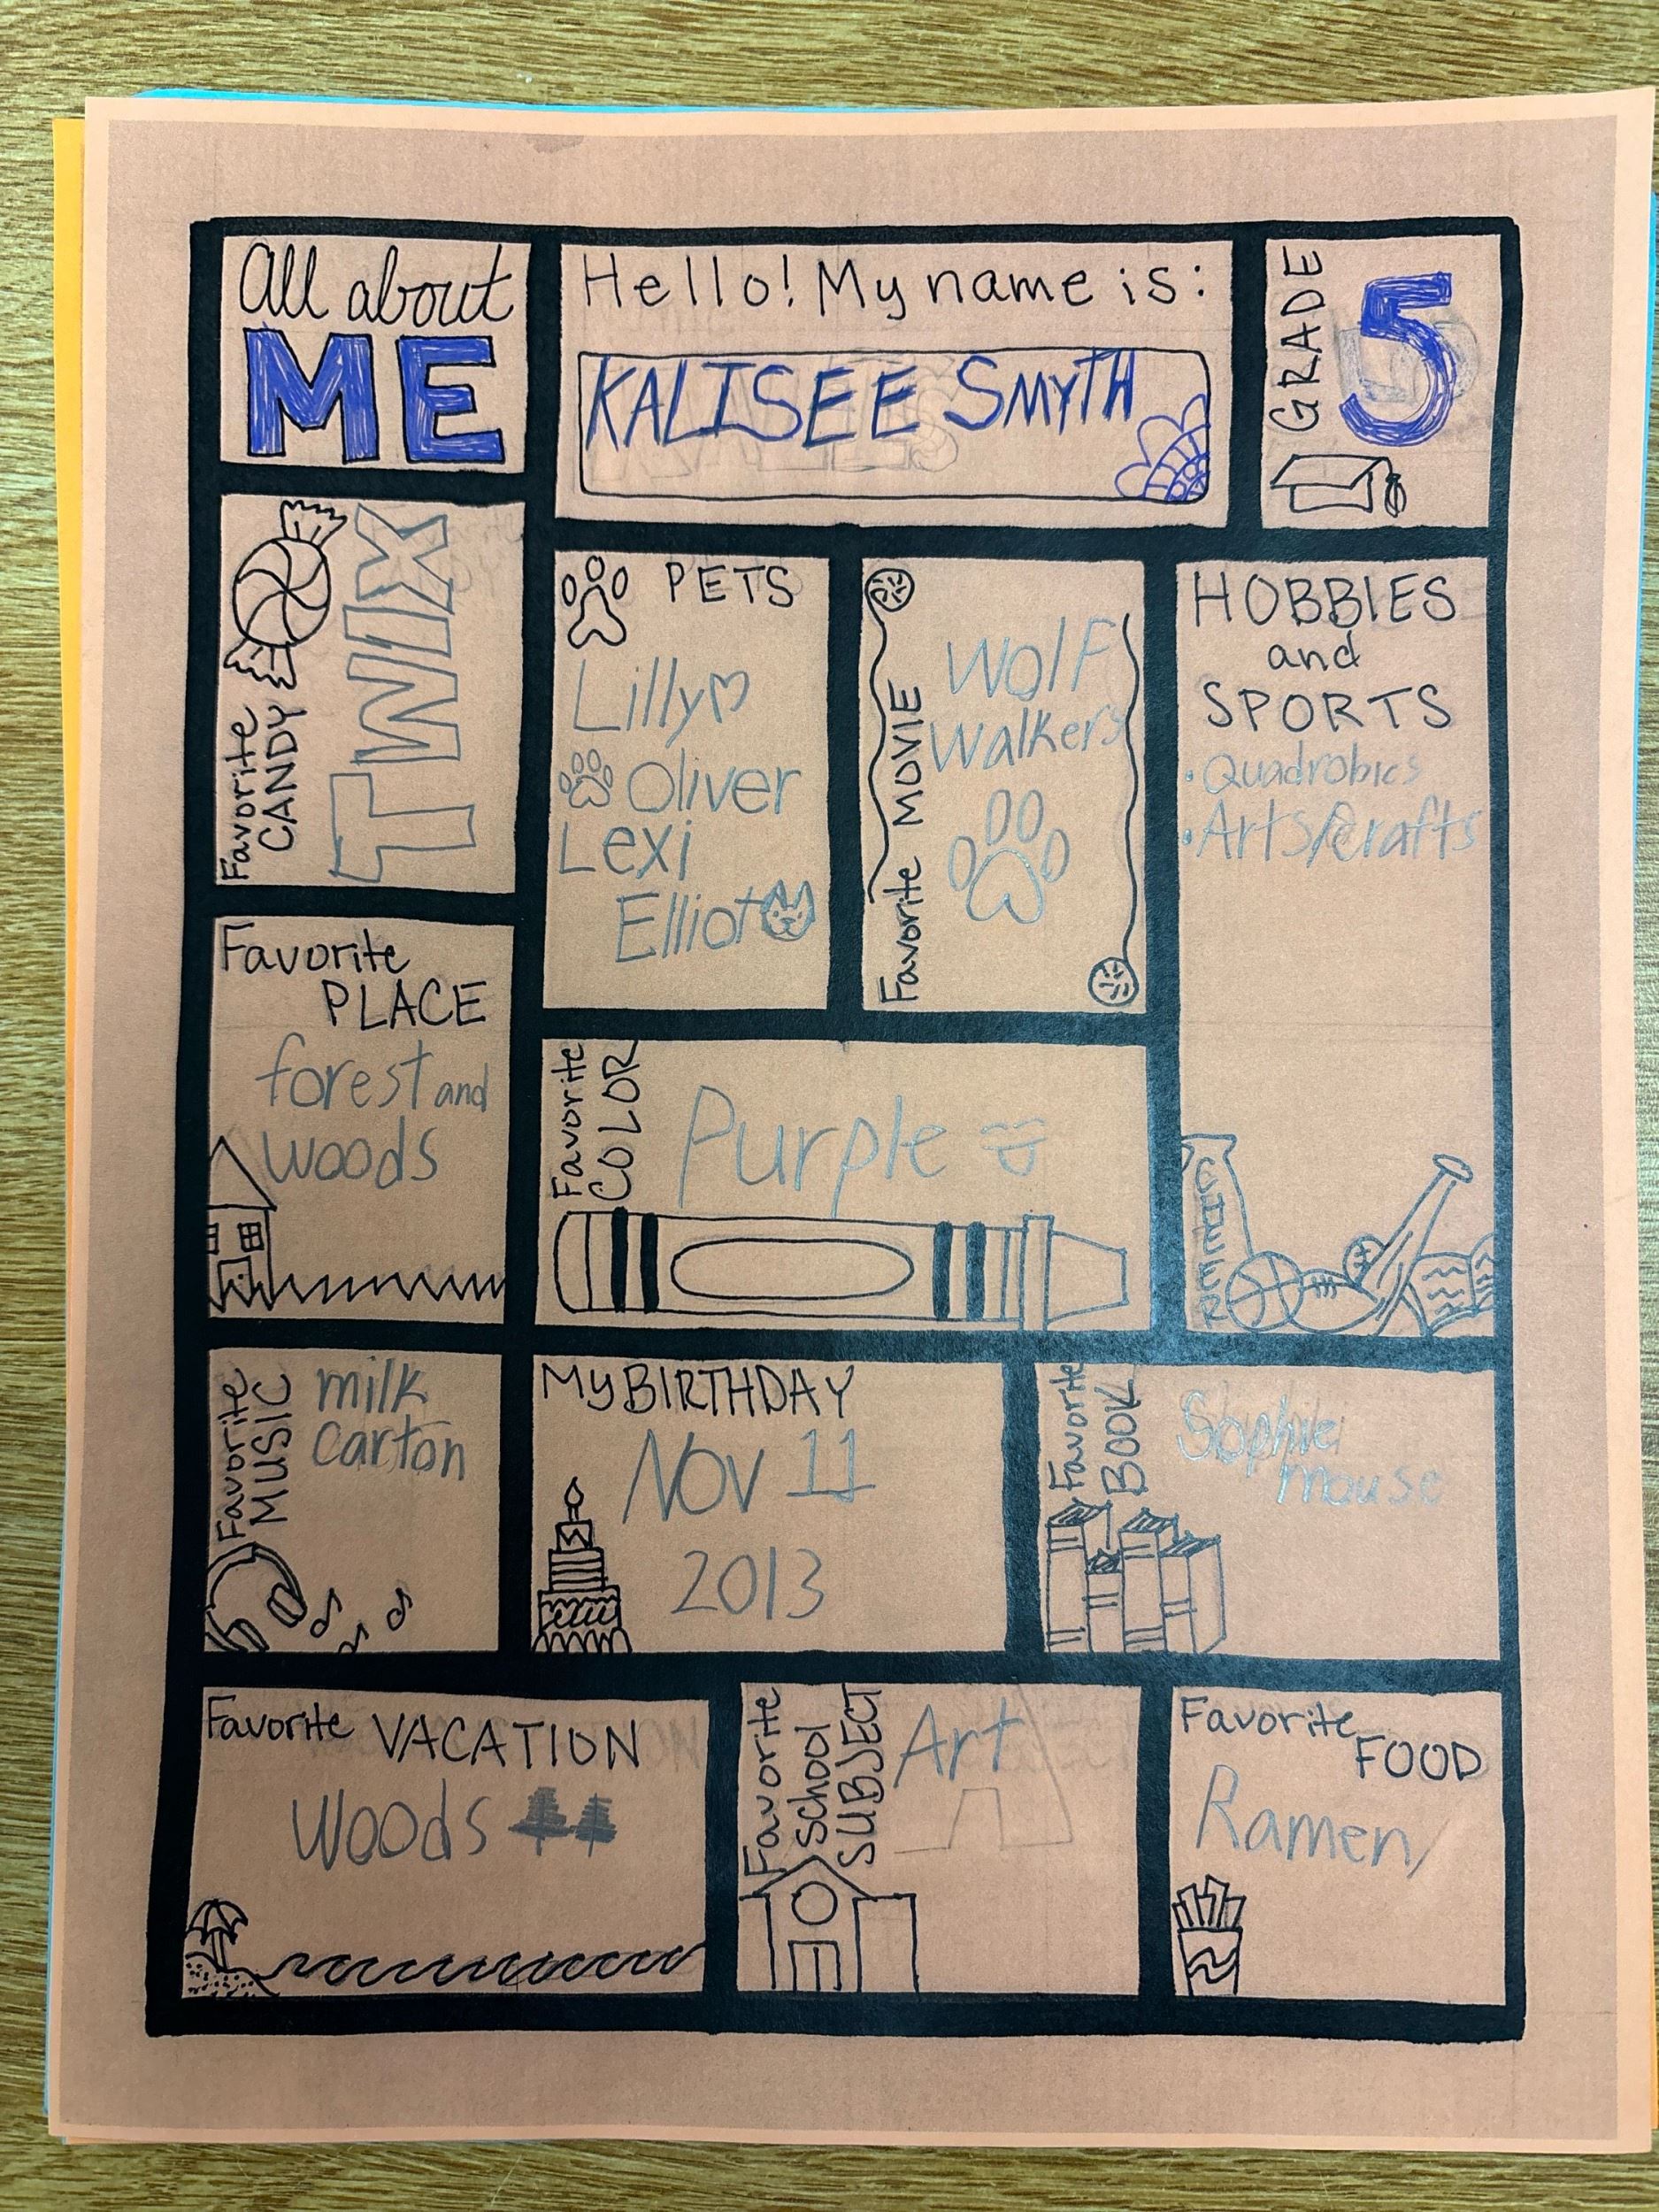 All about
ME
Hello! My name is:
KALISEE SMYTH
GRADE
5
Favorite
CANDY
TWIX
PETS
Lilly
Oliver
Lexi
Elliot
Favorite MOVIE
Wolf
Walkers
HOBBIES
and
SPORTS
• Quadrobics
• Arts/Crafts
Favorite
PLACE
forest and
woods
Favorite
COLOR
Purple
Favorite
MUSIC
milk
carton
My BIRTHDAY
Nov 11
2013
Favorite
BOOK
mouse
Favorite VACATION
Woods
Favorite
School
SUBJECT
Art
Favorite
FOOD
Ramen